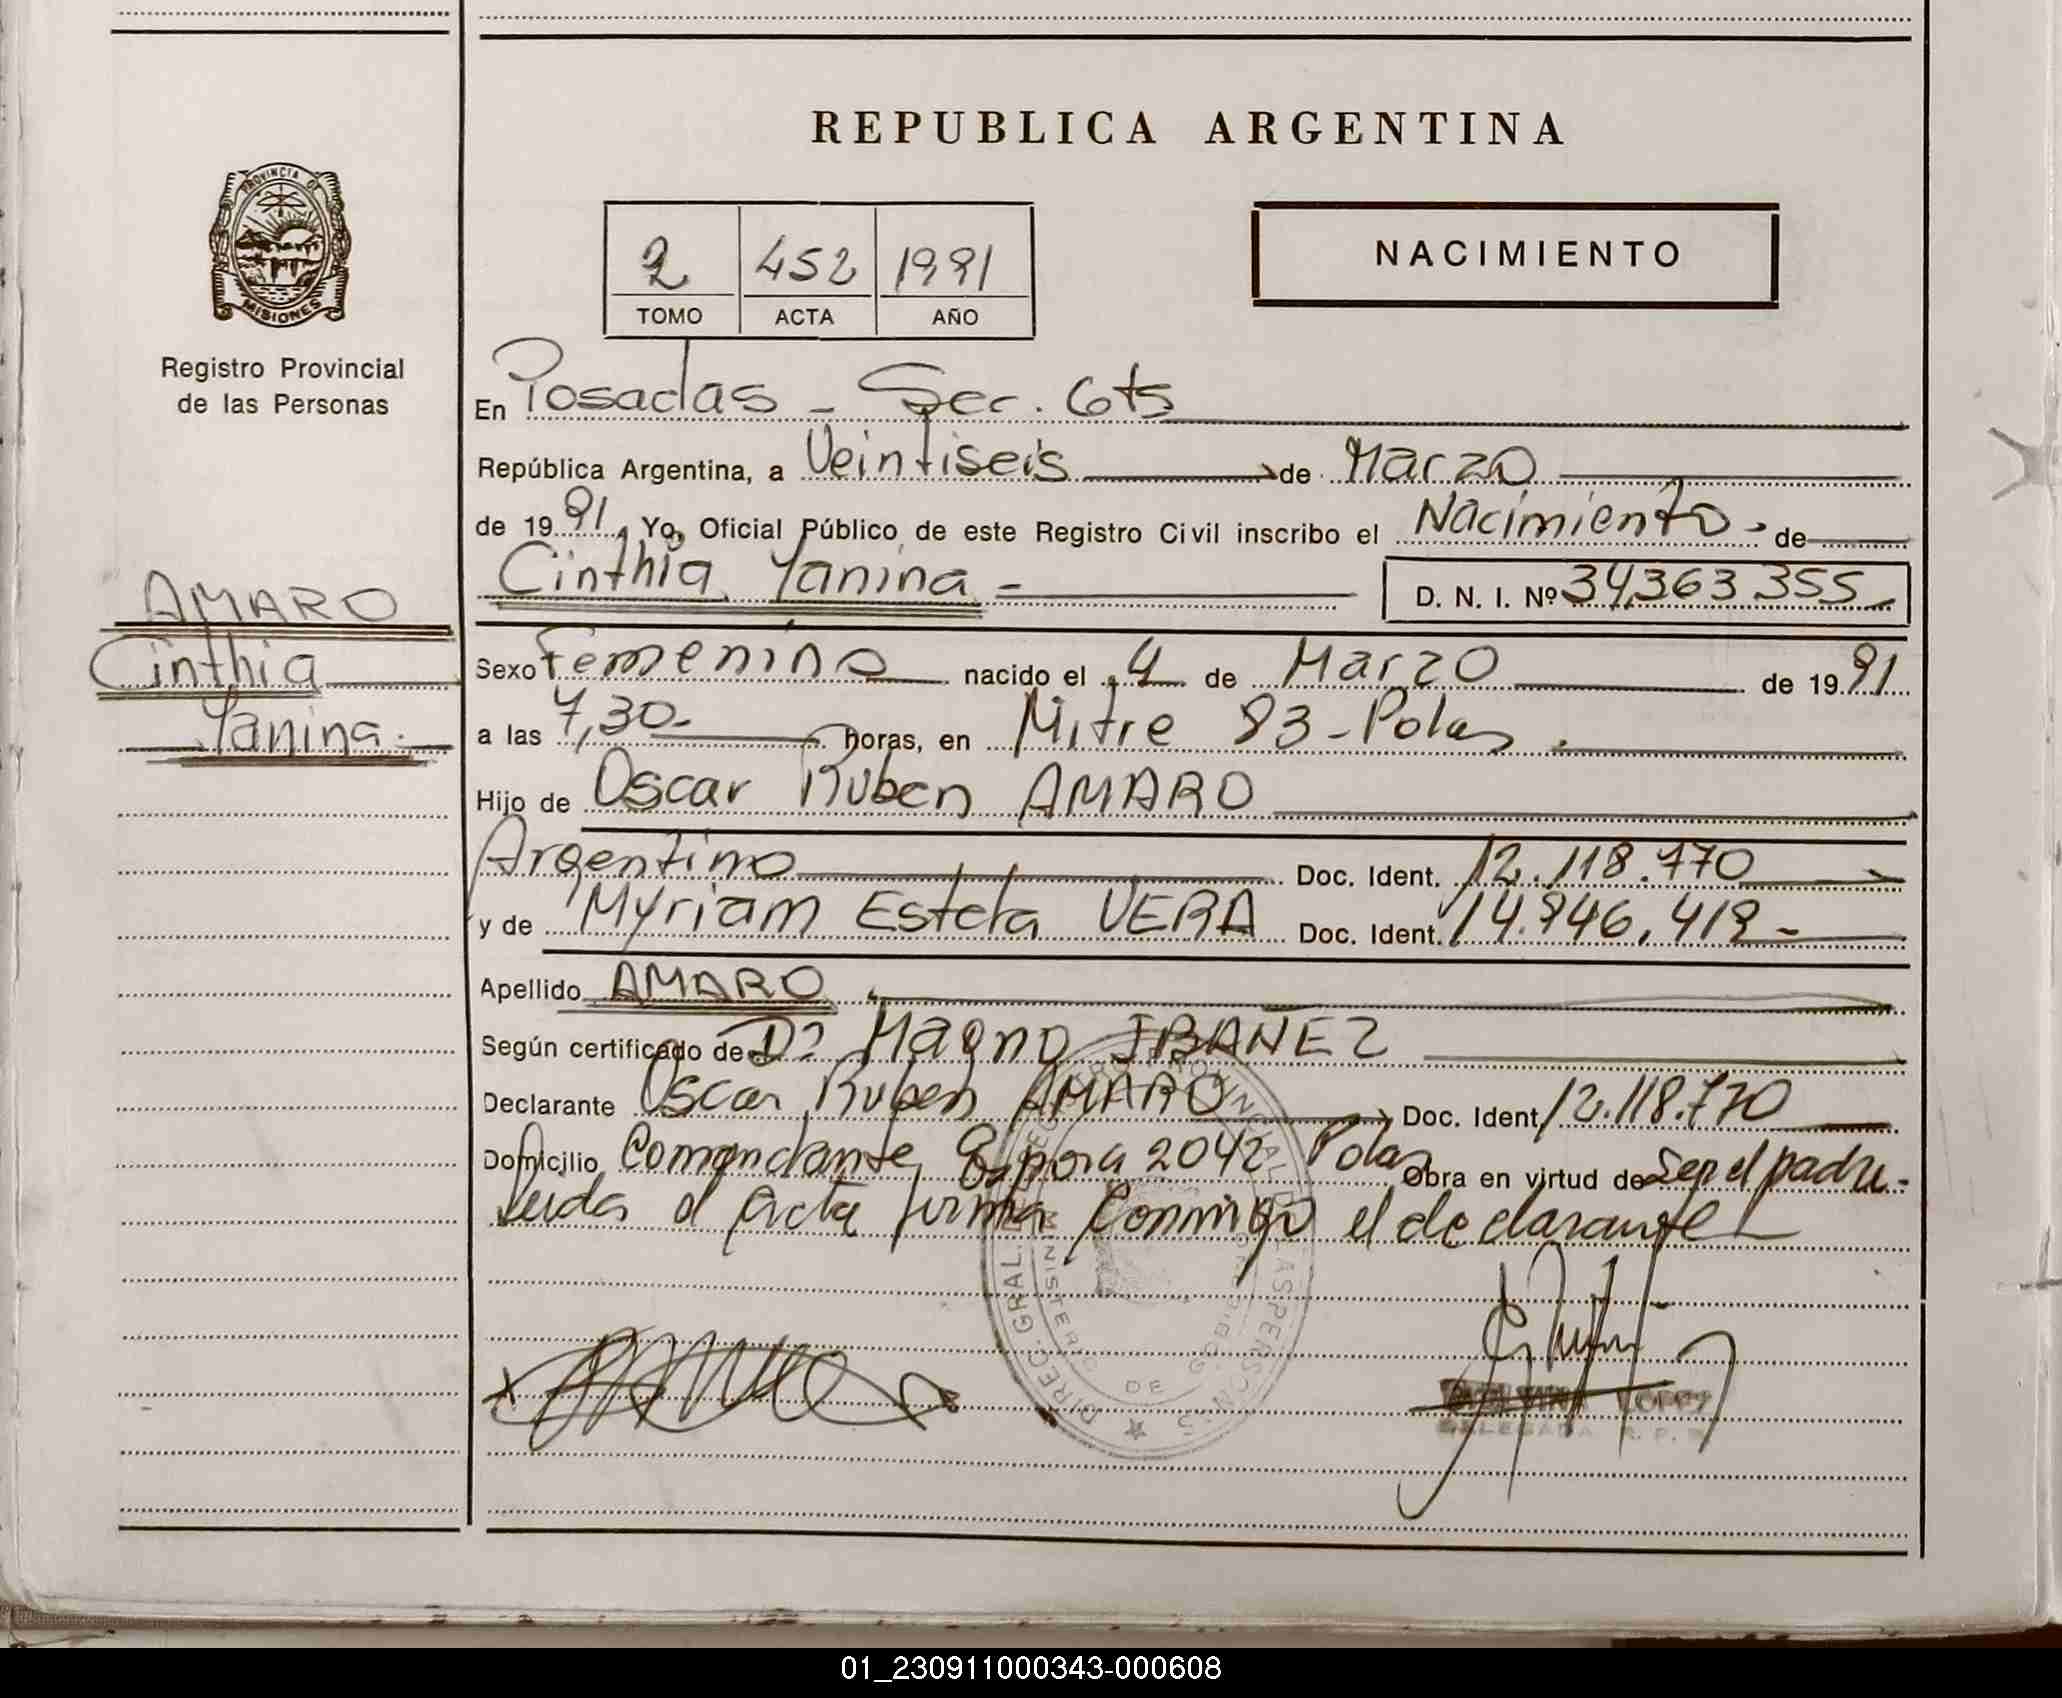 REPUBLICA ARGENTINA
PROVINCIA DE
MISIONES
Registro Provincial
de las Personas
2 452 1991
TOMO ACTA AÑO
NACIMIENTO
En Posadas - Sec. 6ts
República Argentina, a Veintiseis de Marzo
de 1991, Yo, Oficial Público de este Registro Civil inscribo el Nacimiento de
Cinthia Yanina - D. N. I. Nº 34,363 355
AMARO
Cinthia
Yanina.
Sexo Femenino nacido el 4 de Marzo de 1991
a las 7,30- horas, en Mitre 83 - Pdas
Hijo de Oscar Ruben AMARO
Argentino Doc. Ident. 12.118.770
y de Myriam Estela VERA Doc. Ident. 14.946,419-
Apellido AMARO
Según certificado de Dr Magno IBAÑEZ
Declarante Oscar Ruben AMARO Doc. Ident 12.118.770
Domicilio Comandante Espora 2042 Pdas Obra en virtud de Ser el padre.
Leida el acta firma Conmigo el declarante
DIREC. GRAL. REGISTRO PROVINCIAL DE LAS PERSONAS
MINISTERIO DE GOBIERNO
DELEGADA R. P. P.
01_230911000343-000608